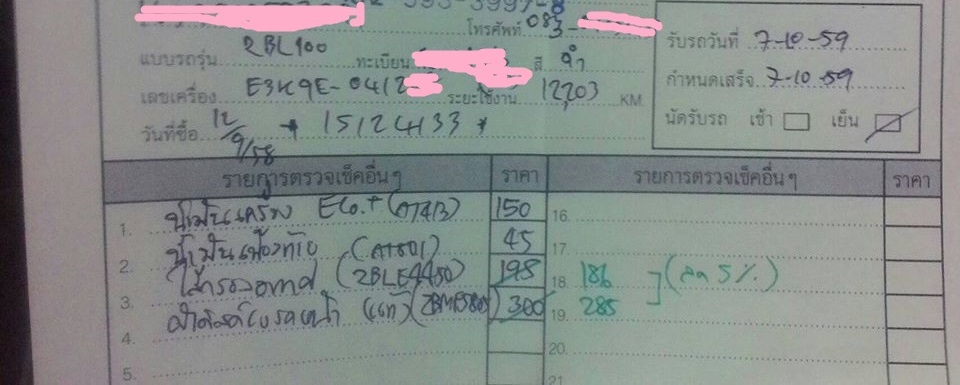 593-3997-8
โทรศัพท์ 083-
แบบรถรุ่น 2BL100 ทะเบียน สี ดำ
เลขเครื่อง E3K9E-0412 ระยะใช้งาน 12,203 KM.
วันที่ซื้อ 12/9/58 * 15124133 *
รับรถวันที่ 7-10-59
กำหนดเสร็จ 7-10-59
นัดรับรถ เช้า เย็น
รายการตรวจเช็คอื่นๆ ราคา รายการตรวจเช็คอื่นๆ ราคา
1. น้ำมันเครื่อง Eco.+ 150 16.
2. น้ำมันเฟืองท้าย (AT801) 45 17.
3. ไส้กรองอากาศ (2BLE4450) 198 18. 186 (ลด 5%)
4. ผ้าดิสค์เบรคหน้า (แท้) 300 19. 285
5. 20.
21